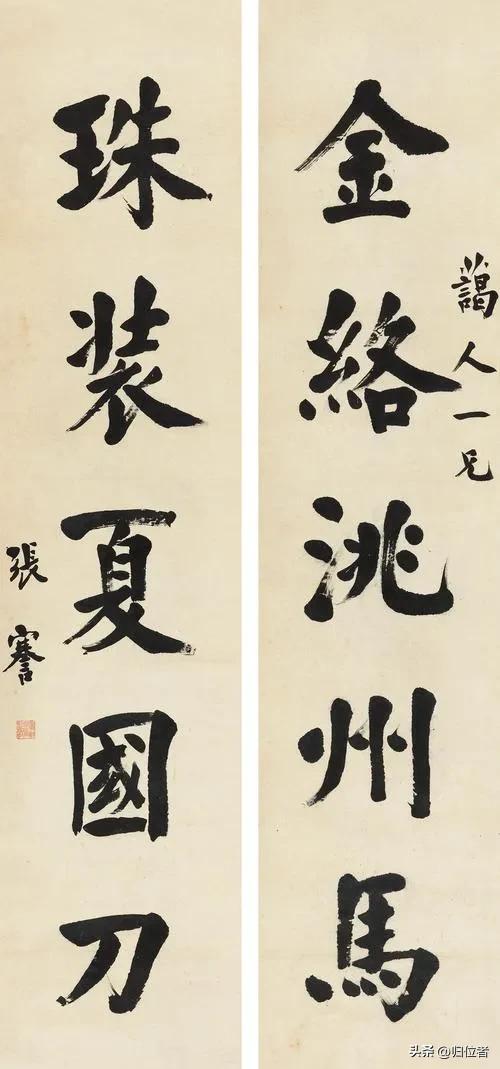 金絡洮州馬
藹人一兄
珠装夏國刀
張謇
头条 @归位者